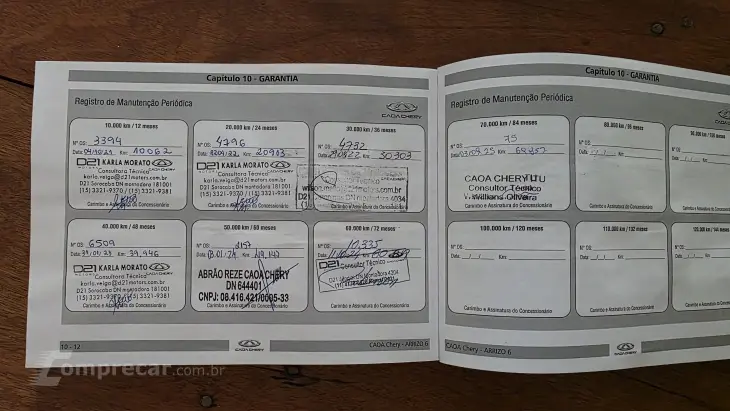 Capítulo 10 - GARANTIA
Registro de Manutenção Periódica
CAOA CHERY
10.000 km / 12 meses
Nº OS: 3394
Data: 04/10/21 Km: 10062
D21 KARLA MORATO
MOTORS Consultora Técnica
karla.veiga@d21motors.com.br
D21 Sorocaba DN montadora 181001
(15) 3321-9370 / (15) 3321-9381
Carimbo e Assinatura do Concessionário
20.000 km / 24 meses
Nº OS: 4796
Km: 20913
D21 KARLA MORATO
MOTORS Consultora Técnica
karla.veiga@d21motors.com.br
D21 Sorocaba DN montadora 181001
(15) 3321-9370 / (15) 3321-9381
Carimbo e Assinatura do Concessionário
30.000 km / 36 meses
Nº OS: 4732
Km: 30303
Técnico
.com.br
D21 DN montadora 4034
Carimbo e Assinatura do Concessionário
40.000 km / 48 meses
Nº OS: 6509
Data: Km: 39,946
D21 KARLA MORATO
MOTORS Consultora Técnica
karla.veiga@d21motors.com.br
D21 Sorocaba DN montadora 181001
(15) 3321-9370 / (15) 3321-9381
Carimbo e Assinatura do Concessionário
50.000 km / 60 meses
Nº OS:
Data: Km:
ABRÃO REZE CAOA CHERY
DN 644401
CNPJ: 08.416.421/0005-33
Carimbo e Assinatura do Concessionário
60.000 km / 72 meses
Nº OS: 10.335
Data: Km:
D21 Consultor Técnico
Carimbo e Assinatura do Concessionário
10 - 12
CAOA CHERY
CAOA Chery - ARRIZO 6
Capítulo 10 - GARANTIA
Registro de Manutenção Periódica
CAOA
70.000 km / 84 meses
Nº OS: 75
Data: Km:
CAOA CHERY UTU
Consultor Técnico
Willians Oliveira
Carimbo e Assinatura do Concessionário
80.000 km / 96 meses
Nº OS:
Data: / / Km:
Carimbo e Assinatura do Concessionário
Nº OS:
Data: / / Km:
Carimbo e Assinatura do
100.000 km / 120 meses
Nº OS:
Data: / / Km:
Carimbo e Assinatura do Concessionário
110.000 km / 132 meses
Nº OS:
Data: / / Km:
Carimbo e Assinatura do Concessionário
120.000 km / 144 meses
Nº OS:
Data: / / Km:
Carimbo e Assinatura do Concessionário
CAOA Chery - ARRIZO 6
CAOA CHERY
Comprecar.com.br